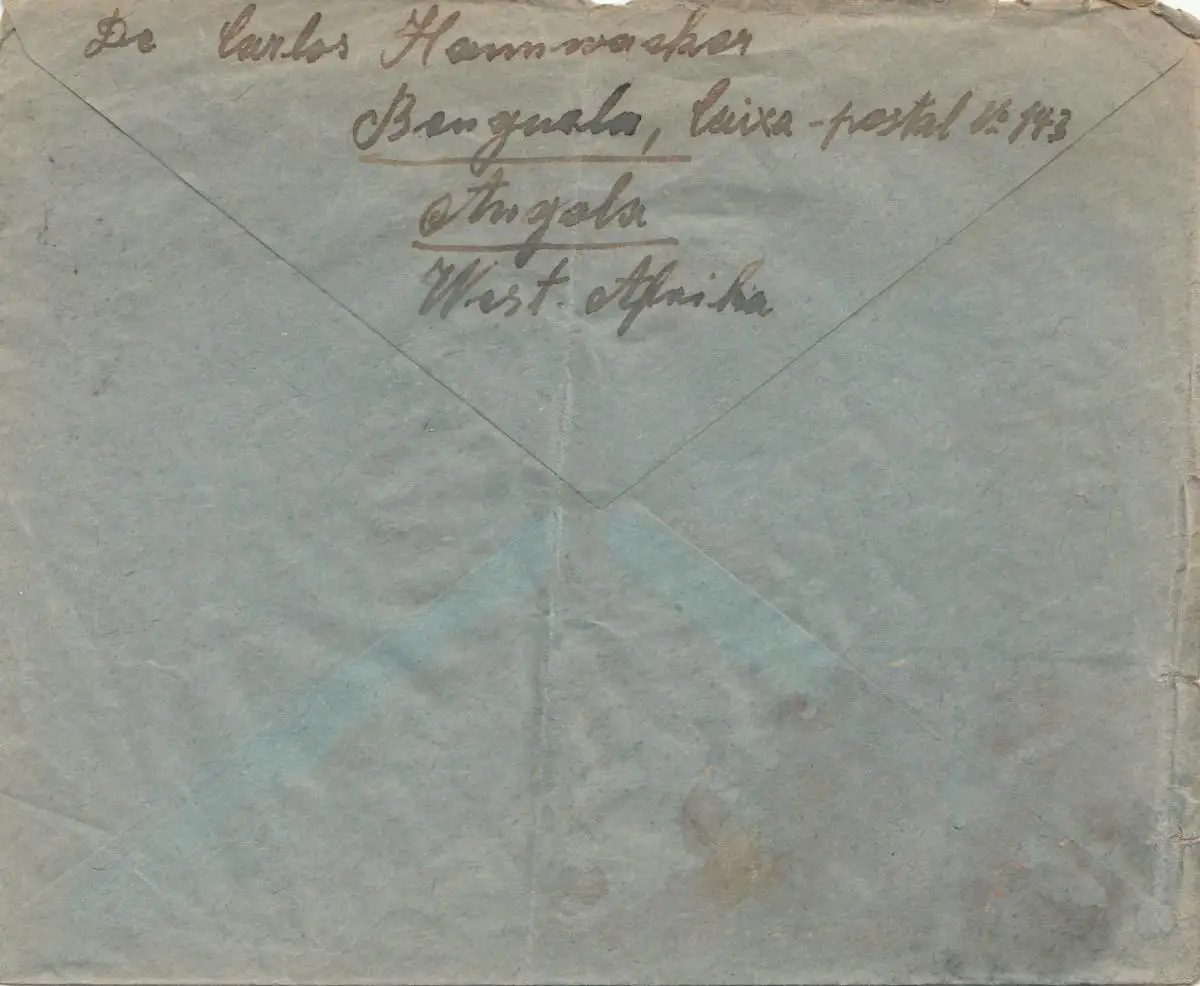 De Carlos Hannwacker
Benguela, Caixa-postal Nº 143
Angola
West-Afrika